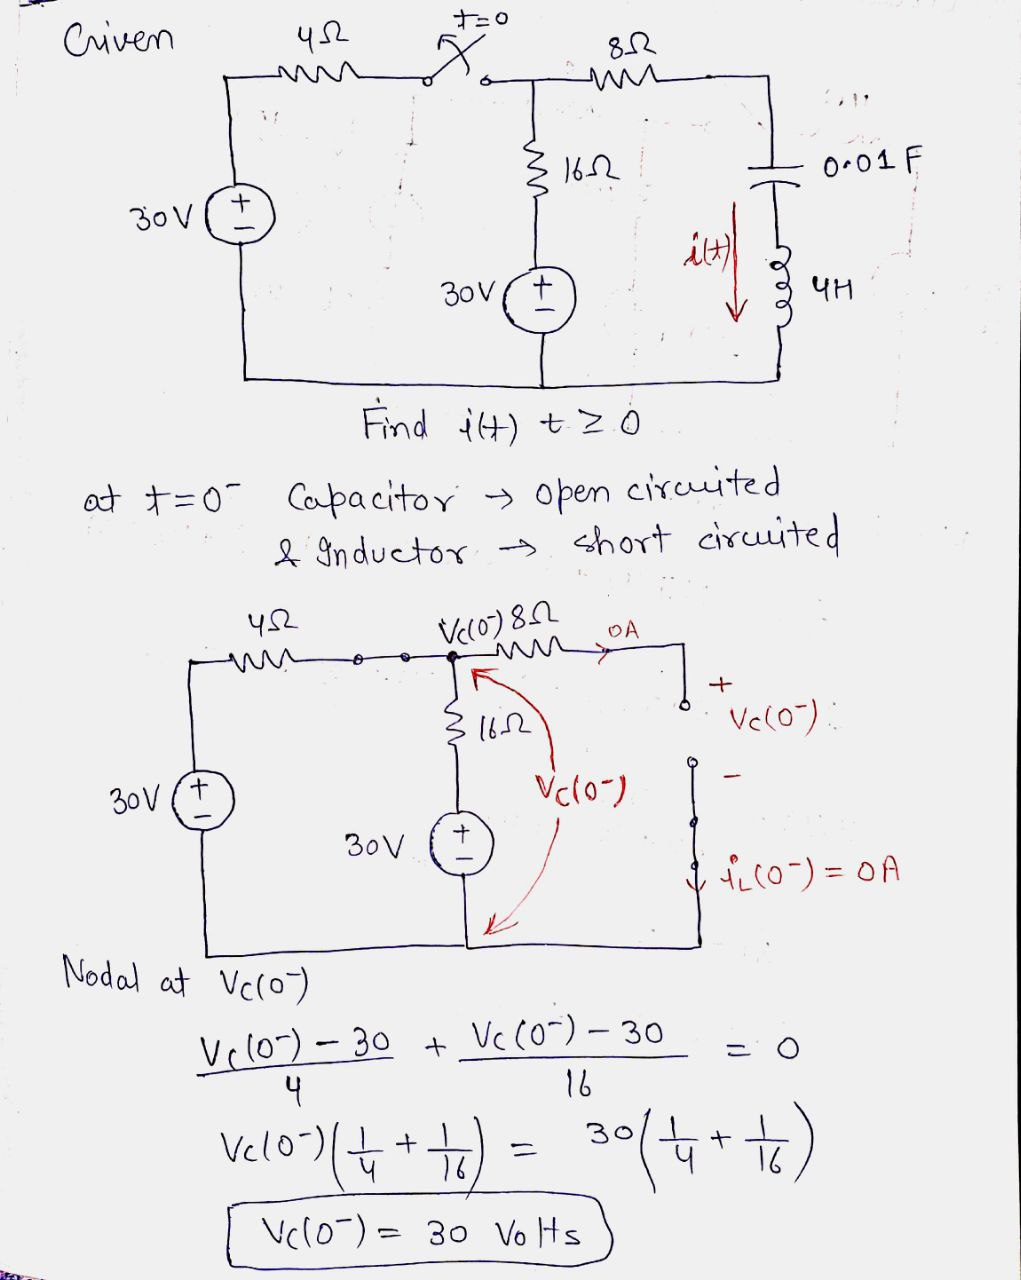 Given
4Ω
t=0
8Ω
16Ω
0.01F
30V
+
−
i(t)
30V
+
−
4H
Find i(t) t ≥ 0
at t=0⁻ Capacitor → open circuited
& Inductor → short circuited
4Ω
Vc(0⁻) 8Ω
0A
+
Vc(0⁻)
−
16Ω
30V
+
−
Vc(0⁻)
30V
+
−
iL(0⁻) = 0A
Nodal at Vc(0⁻)
(Vc(0⁻) − 30)/4 + (Vc(0⁻) − 30)/16 = 0
Vc(0⁻)(1/4 + 1/16) = 30(1/4 + 1/16)
Vc(0⁻) = 30 Volts